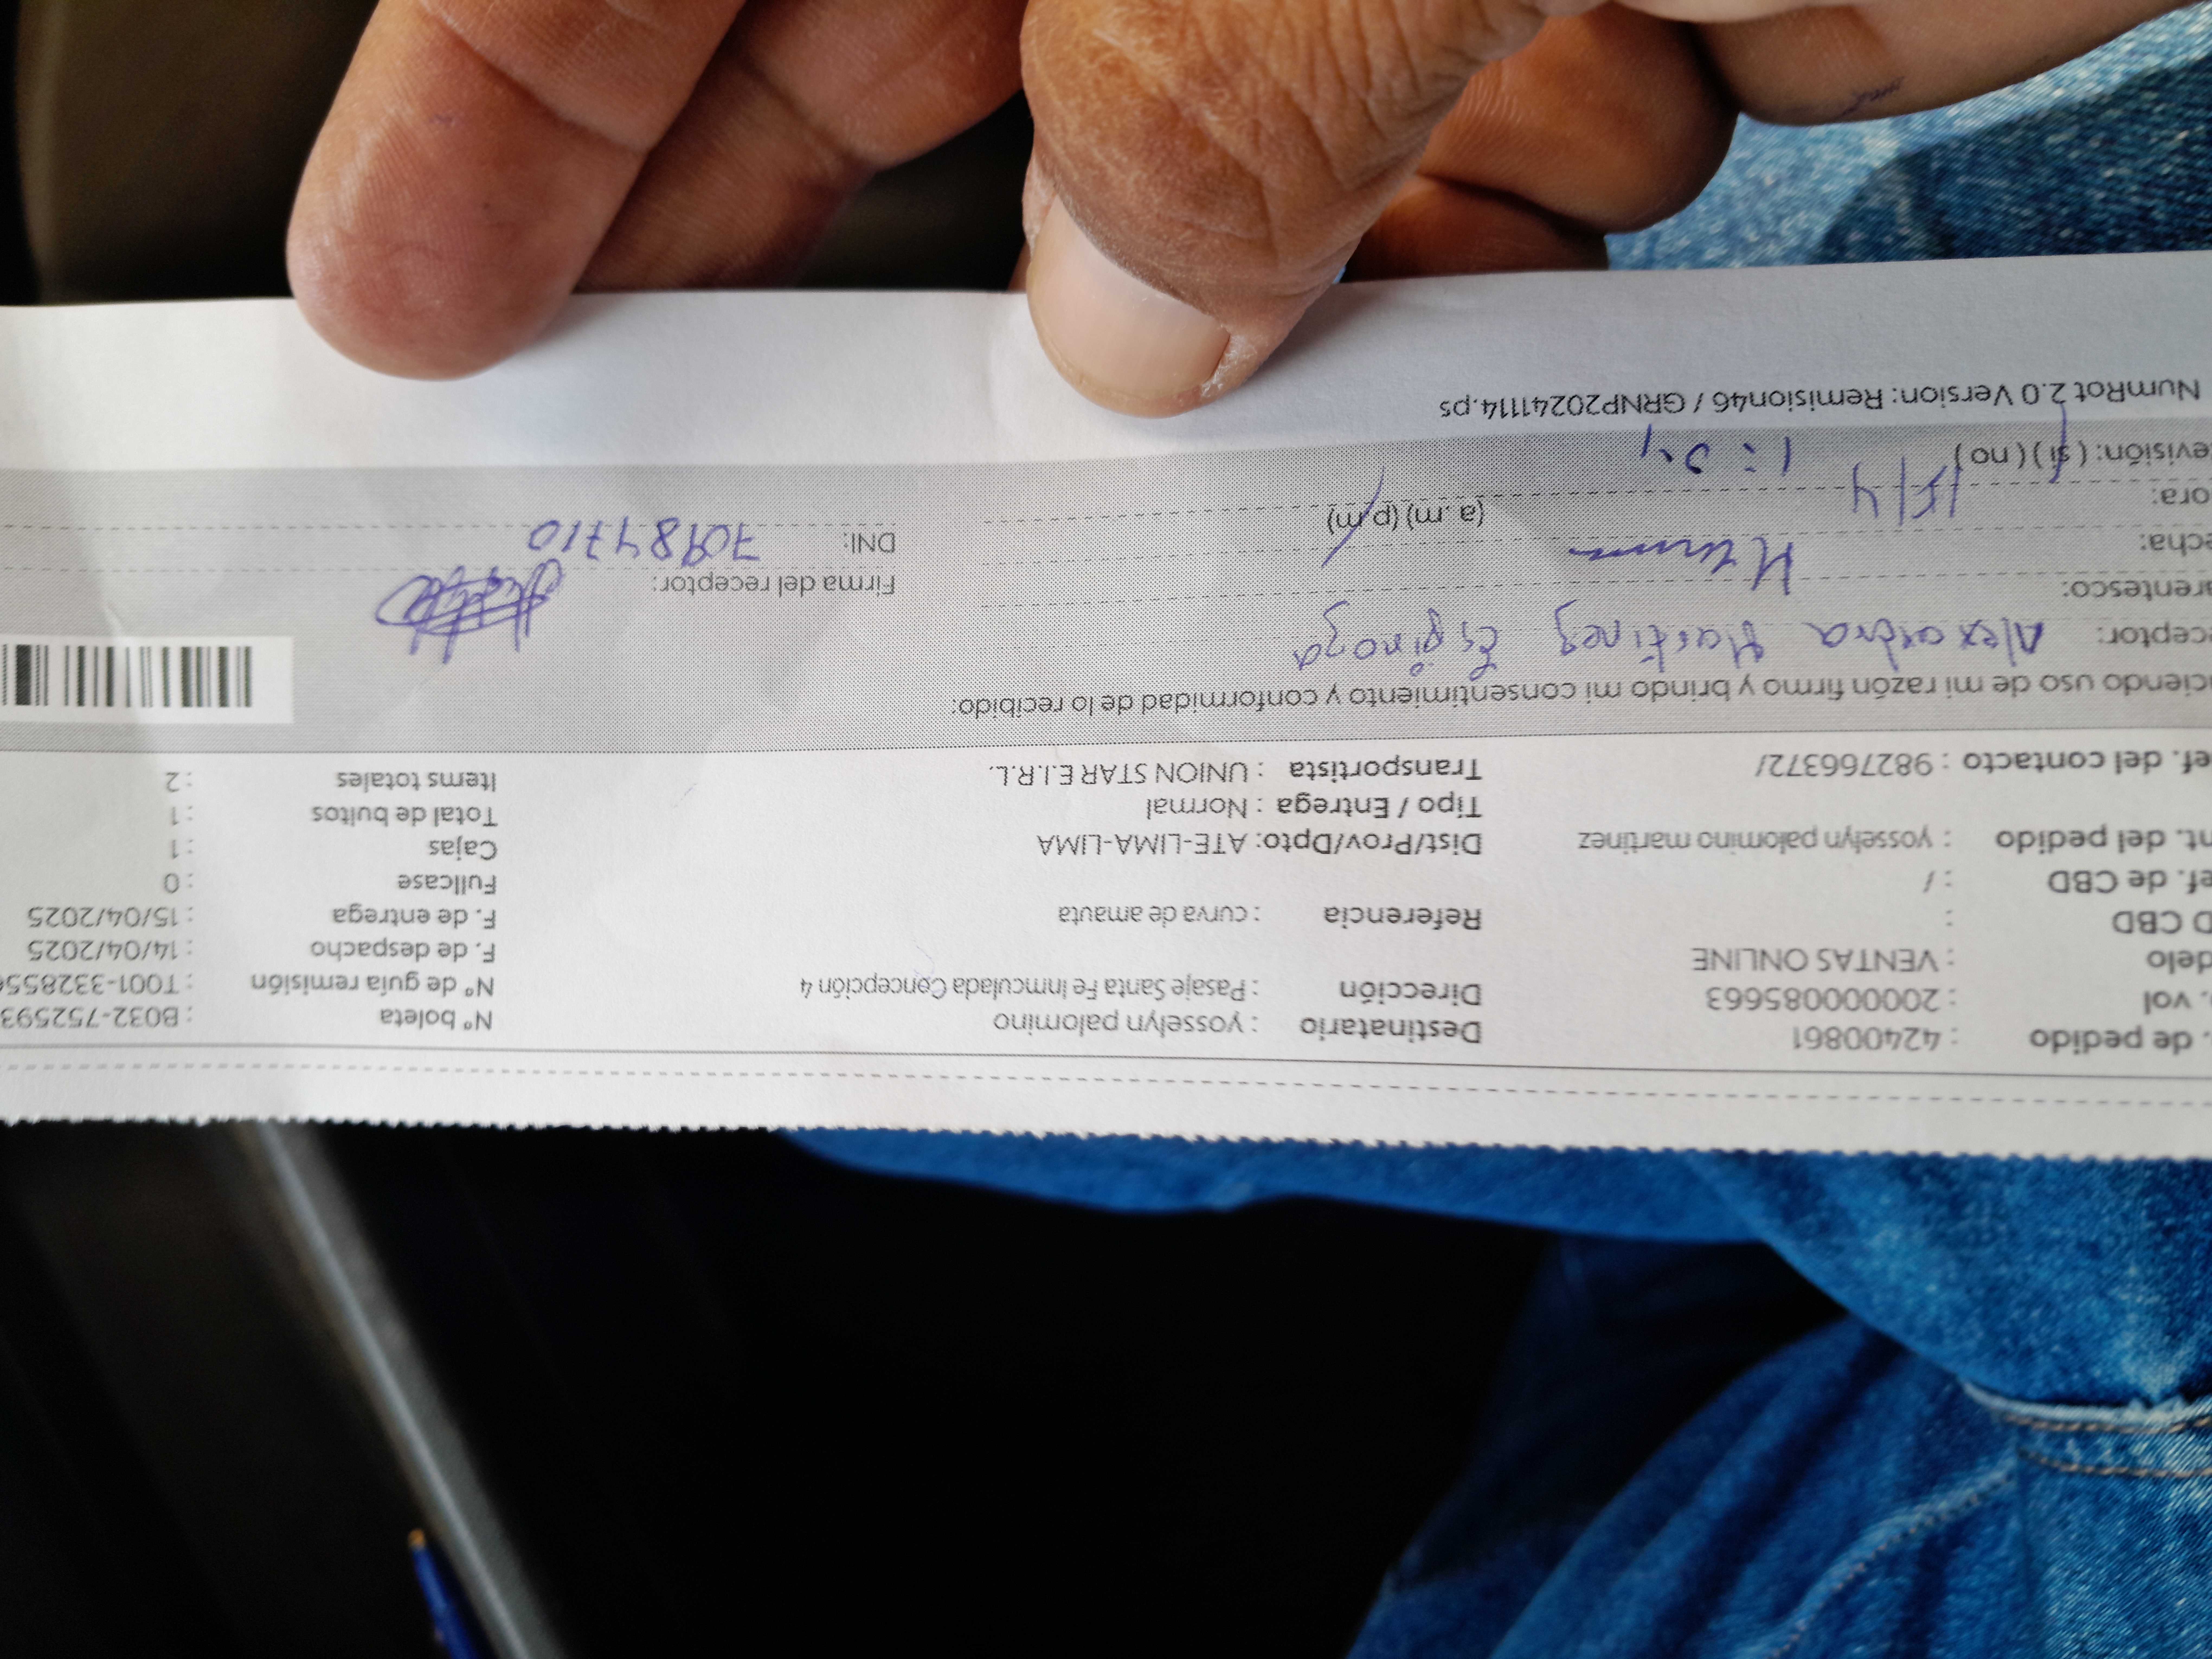 . de pedido : 42400861 Destinatario : yosselyn palomino Nº boleta : B032-752593
. vol : 200000085663 Dirección : Pasaje Santa Fe Inmculada Concepción 4 Nº de guía remisión : T001-3328556
delo : VENTAS ONLINE F. de despacho : 14/04/2025
D CBD : Referencia : curva de amauta F. de entrega : 15/04/2025
ef. de CBD : / Fullcase : 0
nt. del pedido : yosselyn palomino martinez Dist/Prov/Dpto: ATE-LIMA-LIMA Cajas : 1
Tipo / Entrega : Normal Total de bultos : 1
ef. del contacto : 982766372/ Transportista : UNION STAR E.I.R.L. Items totales : 2
ciendo uso de mi razón firmo y brindo mi consentimiento y conformidad de lo recibido:
ceptor: Alexandra Martinez Espinoza
arentesco: Firma del receptor:
echa: 15/4 DNI: 70984710
ora: (a.m) (p.m)
evisión: (si) (no)
NumRot 2.0 Version: Remision46 / GRNP20241114.ps